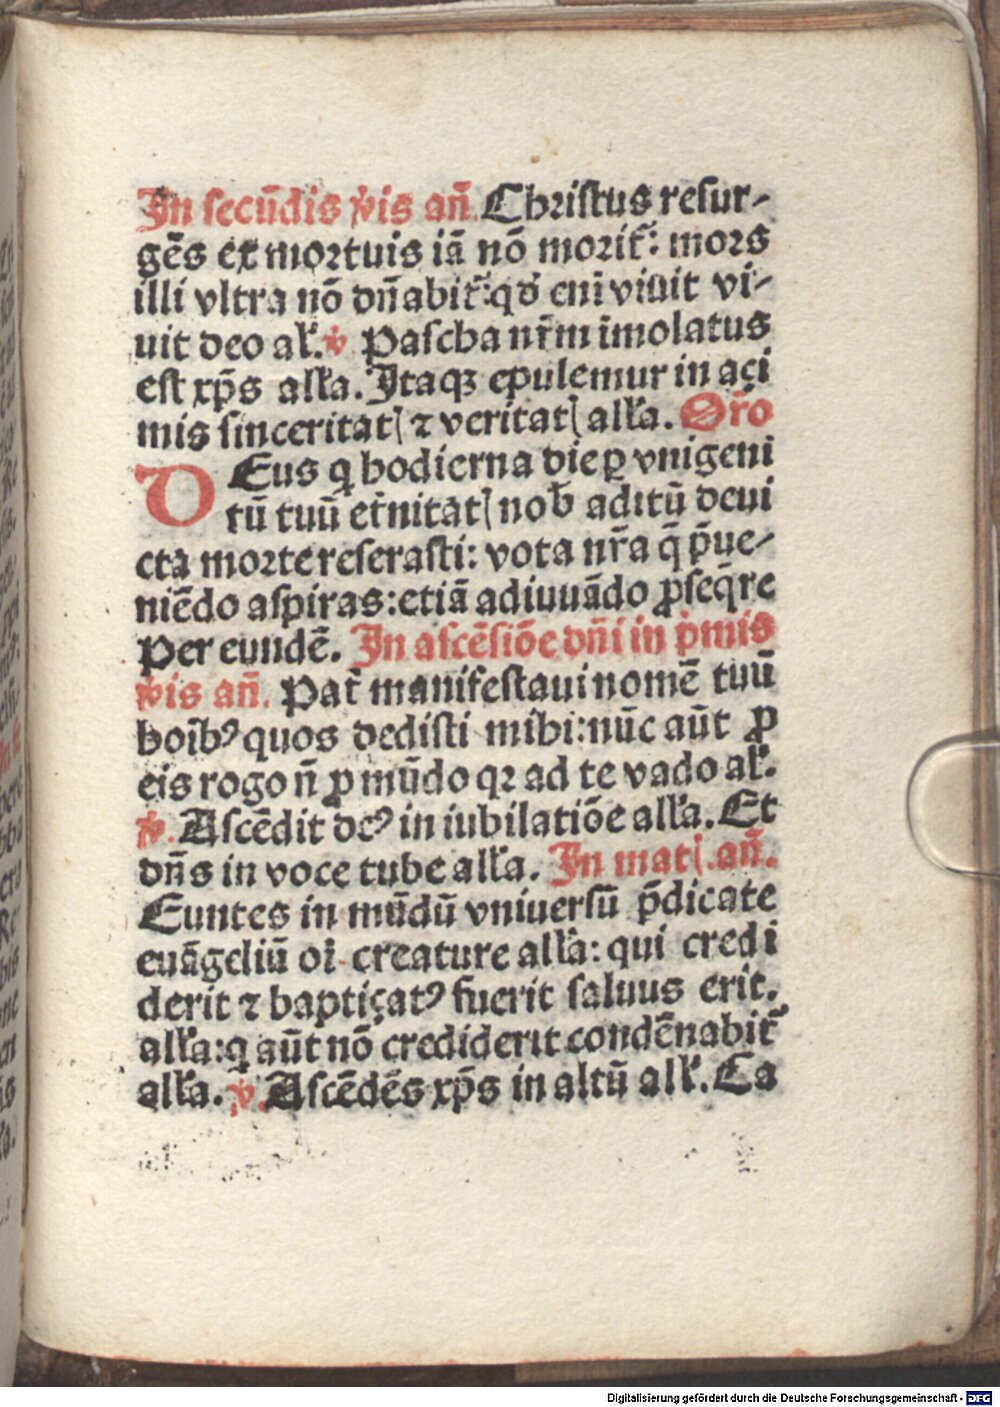 In secūdis v̄is an̄. Christus resur-
gēs ex mortuis iā nō morit᷑: mors
illi vltra nō dn̄abit᷑: qđ eni viuit vi-
uit deo al̄. ℣. Pascha nr̄m imolatus
est xp̄s all̄a. Itaqꝫ epulemur in açi
mis sinceritatꝭ ⁊ veritatꝭ all̄a. Or̄o
DEus q hodierna die ꝑ vnigeni
tū tuū et̄nitatꝭ nob̄ aditū deui
cta morte reserasti: vota nr̄a q̄ p̄ue-
niēdo aspiras: etiā adiuuādo ꝓseq̄re
Per eundē. In ascēsiōe dn̄i in p̄mis
v̄is an̄. Pat̄ manifestaui nomē tuū
hoīb⁹ quos dedisti mihi: nūc aūt ꝓ
eis rogo n̄ ꝓ mūdo qꝛ ad te vado al̄.
℣. Ascēdit de⁹ in iubilatiōe all̄a. Et
dn̄s in voce tube all̄a. In matꝭ. an̄.
Euntes in mūdū vniuersū p̄dicate
euāgeliū oī creature all̄a: qui credi
derit ⁊ baptiçat⁹ fuerit saluus erit.
all̄a: q aūt nō crediderit condēnabit᷑
all̄a. ℣. Ascēdēs xp̄s in altū all̄. Ca
Digitalisierung gefördert durch die Deutsche Forschungsgemeinschaft - DFG